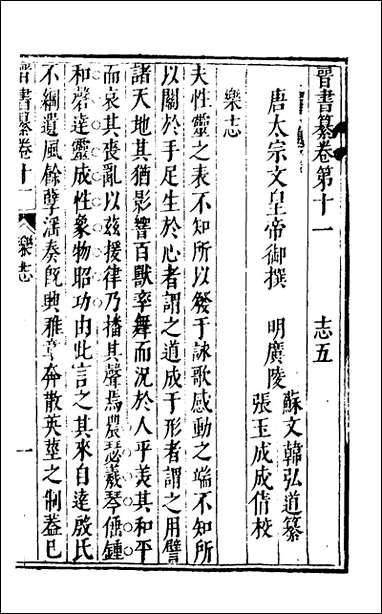 晉書纂卷第十一　志五
唐太宗文皇帝御撰　明廣陵
蘇文韓弘道纂
張玉成成倩校
樂志
夫性靈之表不知所以發于詠歌感動之端不知所
以關於手足生於心者謂之道成于形者謂之用譬
諸天地其猶影響百獸率舞而況於人乎美其和平
而哀其喪亂以茲援律乃播其聲焉農瑟羲琴倕鍾
和磬達靈成性象物昭功由此言之其來自遠殷氏
不綱遺風餘孽淫奏既興雅章奔散英莖之制蓋已
晉書纂卷十一
樂志
一